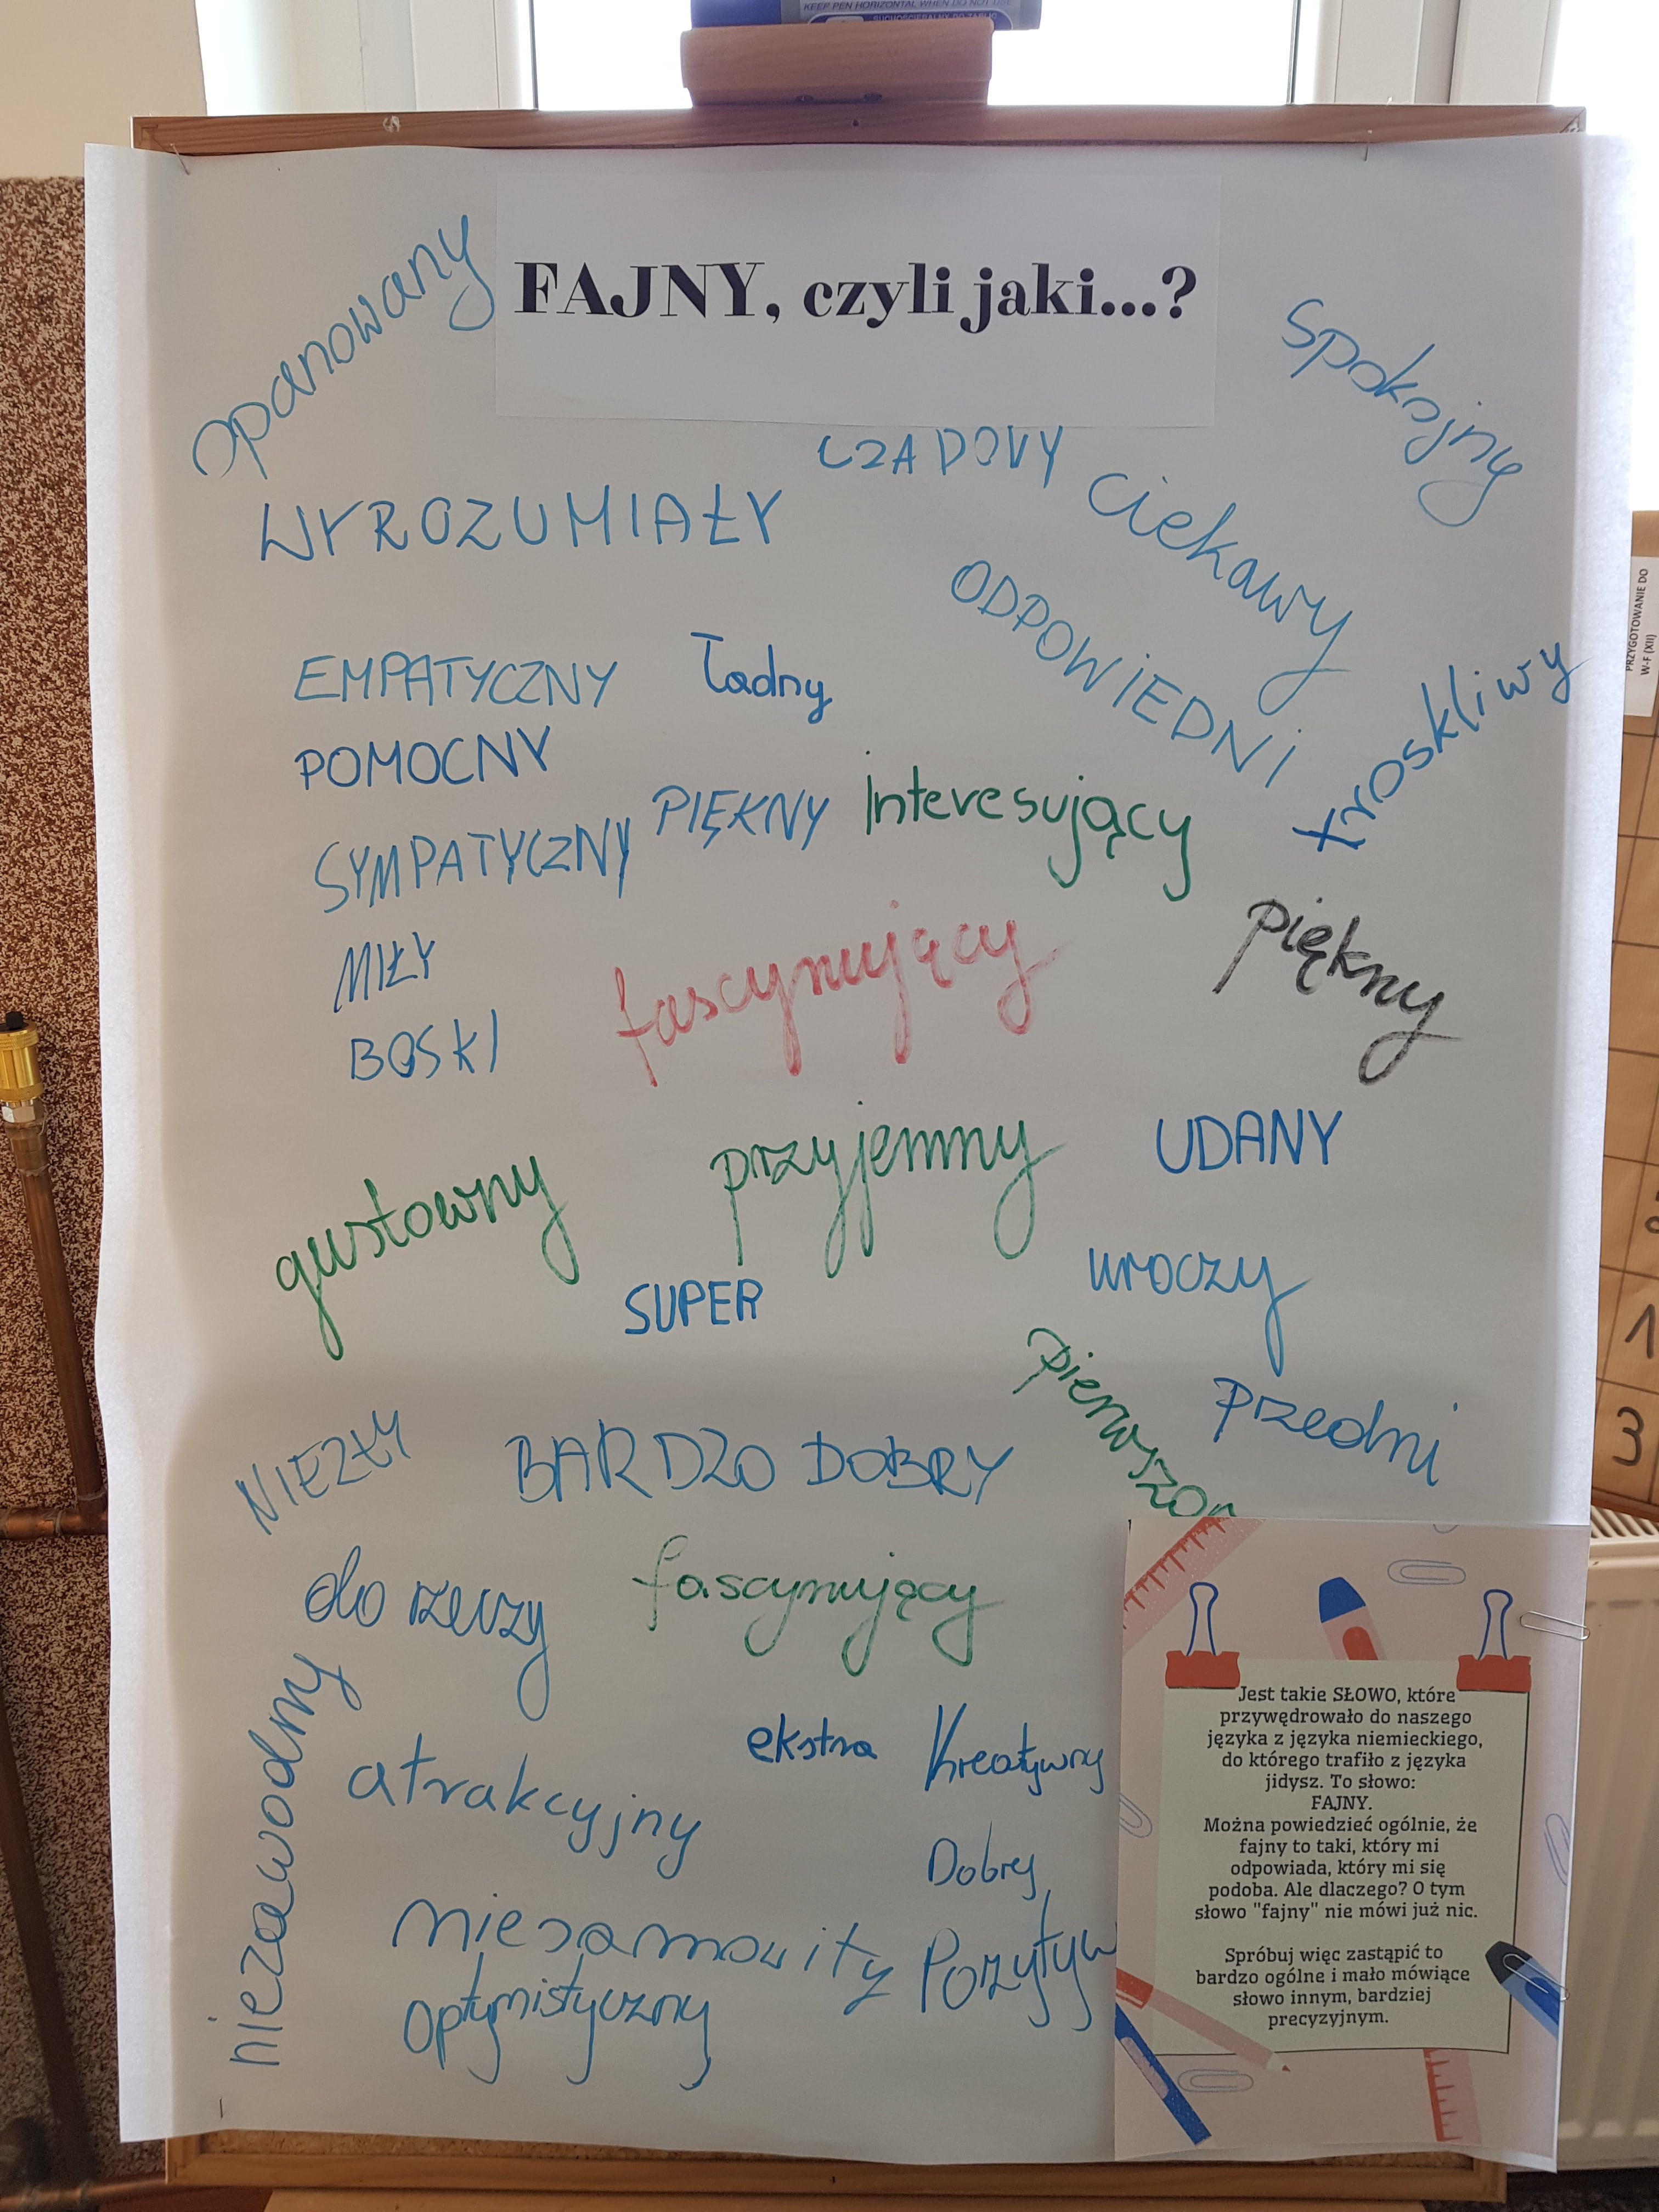 KEEP PEN HORIZONTAL WHEN DO NOT USE
FAJNY, czyli jaki...?
opanowany
spokojny
CZADOVY
ciekawy
WYROZUMIAŁY
ODPOWIEDNI
PRZYGOTOWANIE DO
W-F (XII)
EMPATYCZNY
Ładny
troskliwy
POMOCNY
PIĘKNY
Interesujący
SYMPATYCZNY
piękny
fascynujący
MIŁY
BOSKI
UDANY
przyjemny
gustowny
uroczy
SUPER
1
pierwszor
przedni
3
NIEZŁY
BARDZO DOBRY
do rzeczy
fascynujący
niezawodny
ekstra
Kreatywny
atrakcyjny
Dobry
niesamowity
Pozytyw
Optymistyczny
Jest takie SŁOWO, które
przywędrowało do naszego
języka z języka niemieckiego,
do którego trafiło z języka
jidysz. To słowo:
FAJNY.
Można powiedzieć ogólnie, że
fajny to taki, który mi
odpowiada, który mi się
podoba. Ale dlaczego? O tym
słowo "fajny" nie mówi już nic.
Spróbuj więc zastąpić to
bardzo ogólne i mało mówiące
słowo innym, bardziej
precyzyjnym.